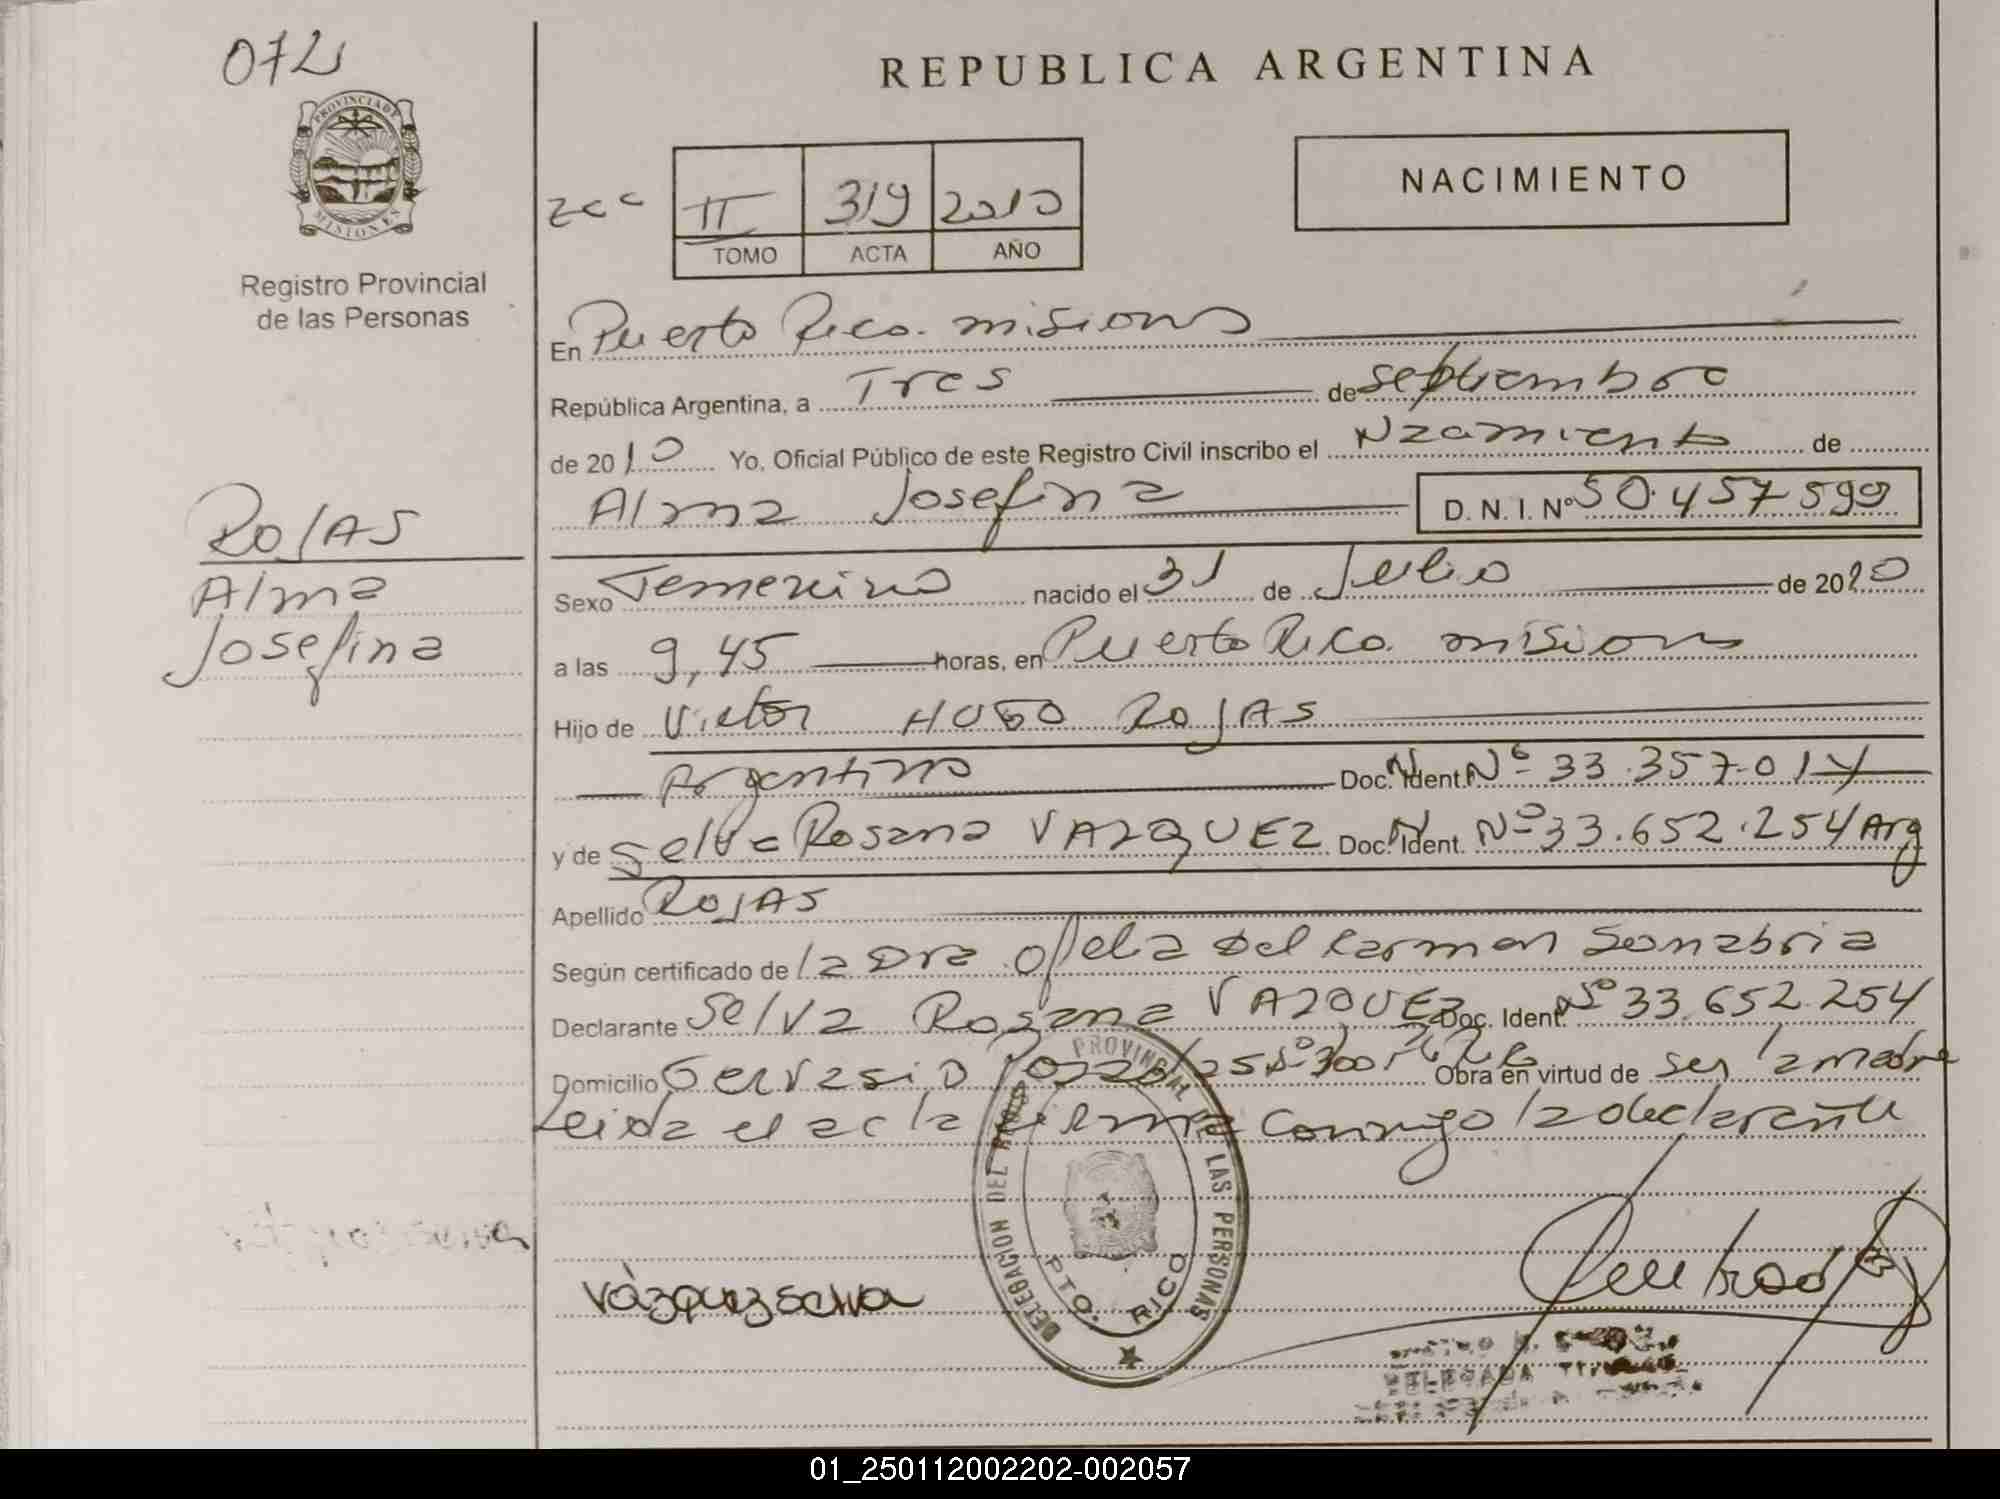 072
REPUBLICA ARGENTINA
PROVINCIA DE
MISIONES
Registro Provincial
de las Personas
NACIMIENTO
II 319 2010
TOMO ACTA AÑO
En Puerto Rico. misiones
República Argentina, a Tres de septiembre
de 2010 Yo, Oficial Público de este Registro Civil inscribo el Nacimiento de
Alma Josefina D. N. I. Nº 50.457.599
ROJAS
Alma
Josefina
Sexo Femenino nacido el 31 de Julio de 2010
a las 9,45 horas, en Puerto Rico. misiones
Hijo de Victor HUGO ROJAS
Argentino Doc. Ident. Nº 33.357.014
y de Selva Rosana VAZQUEZ Doc. Ident. Nº 33.652.254 Arg
Apellido ROJAS
Según certificado de la Dra Ofelia Del Carmen Senabria
Declarante Selva Rosana VAZQUEZ Doc. Ident. Nº 33.652.254
Domicilio Gervasio Obra en virtud de ser la madre
Leida el acta firma conmigo la declarante
DELEGACION DEL PROVINCIAL DE LAS PERSONAS
PTO. RICO
Vázquez selva
01_250112002202-002057